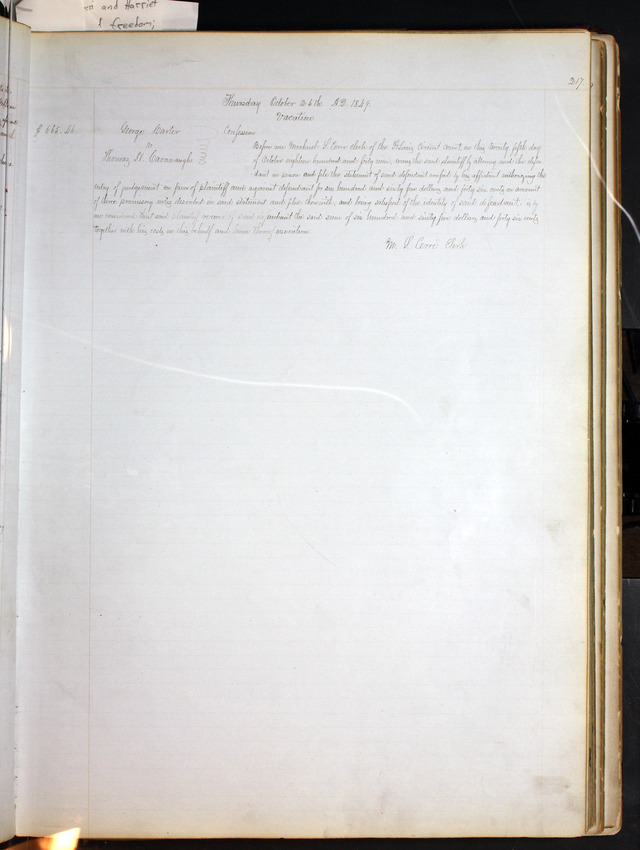 and Harriet
freedom;
217
Thursday October 25th AD. 1849.
Vacation
$665.46 George Barter Confession
vs
Thomas H. Cavanaugh
Before me Michael S Cerre clerk of the Circuit Court, on this twenty fifth day
of October eighteen hundred and forty nine, comes the said plaintiff by attorney and the defen
dant in person and files the statement of said defendant verified by his affidavit authorizing the
entry of judgement in favor of plaintiff and against defendant for six hundred and sixty five dollars and forty six cents on account
of three promissory notes described in said statement and filed therewith, and being satisfied of the identity of said defendant: it is
considered that said plaintiff recover of said defendant the said sum of six hundred and sixty five dollars and forty six cents
together with his costs in this behalf and have thereof execution.
M. S. Cerre Clerk